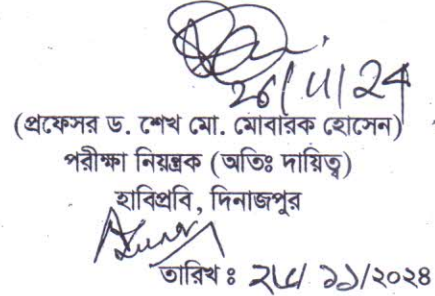 26/11/24
(প্রফেসর ড. শেখ মো. মোবারক হোসেন)
পরীক্ষা নিয়ন্ত্রক (অতিঃ দায়িত্ব)
হাবিপ্রবি, দিনাজপুর
তারিখ ঃ ২৬/১১/২০২৪